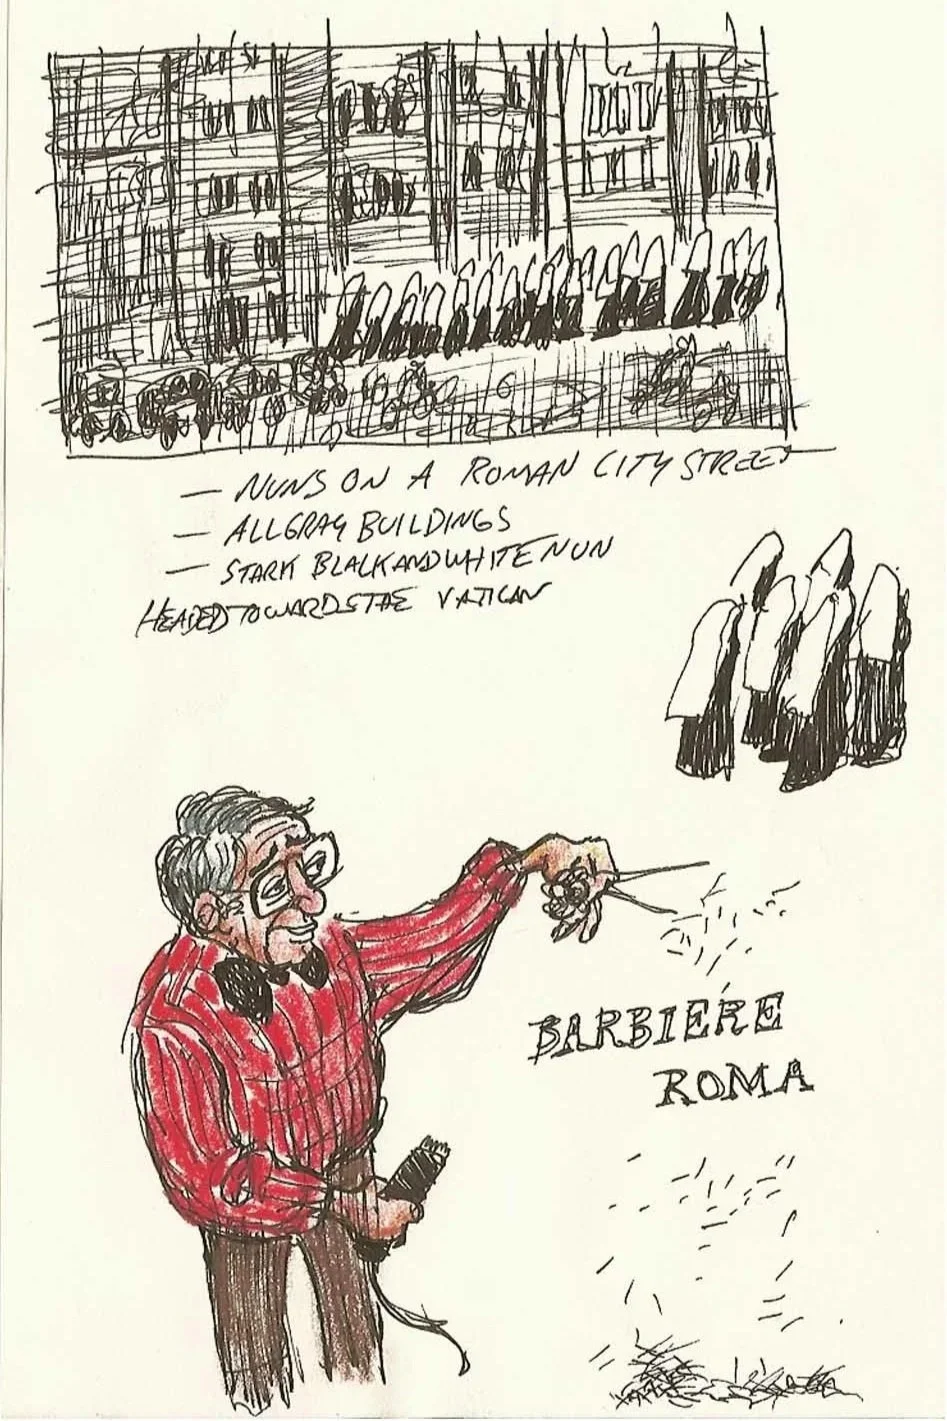 — NUNS ON A ROMAN CITY STREET
— ALL GRAY BUILDINGS
— STARK BLACK AND WHITE NUN
HEADED TOWARDS THE VATICAN
BARBIERE
ROMA